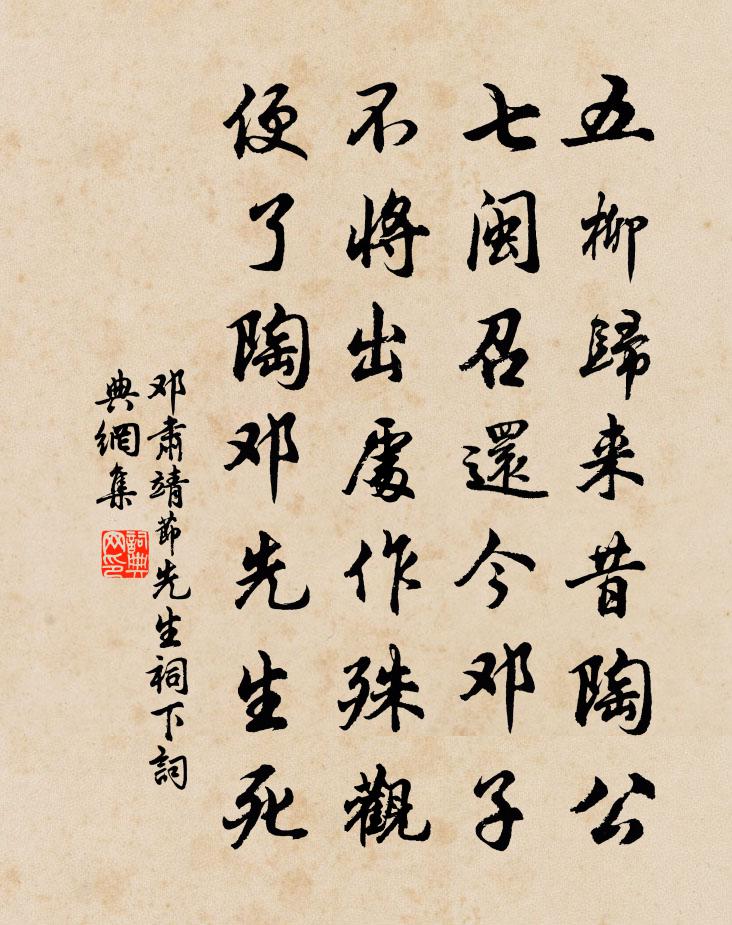 五柳歸来昔陶公
七闽召還今邓子
不將出處作殊觀
便了陶邓先生死
邓肅靖節先生祠下詞
典網集
詞典网印